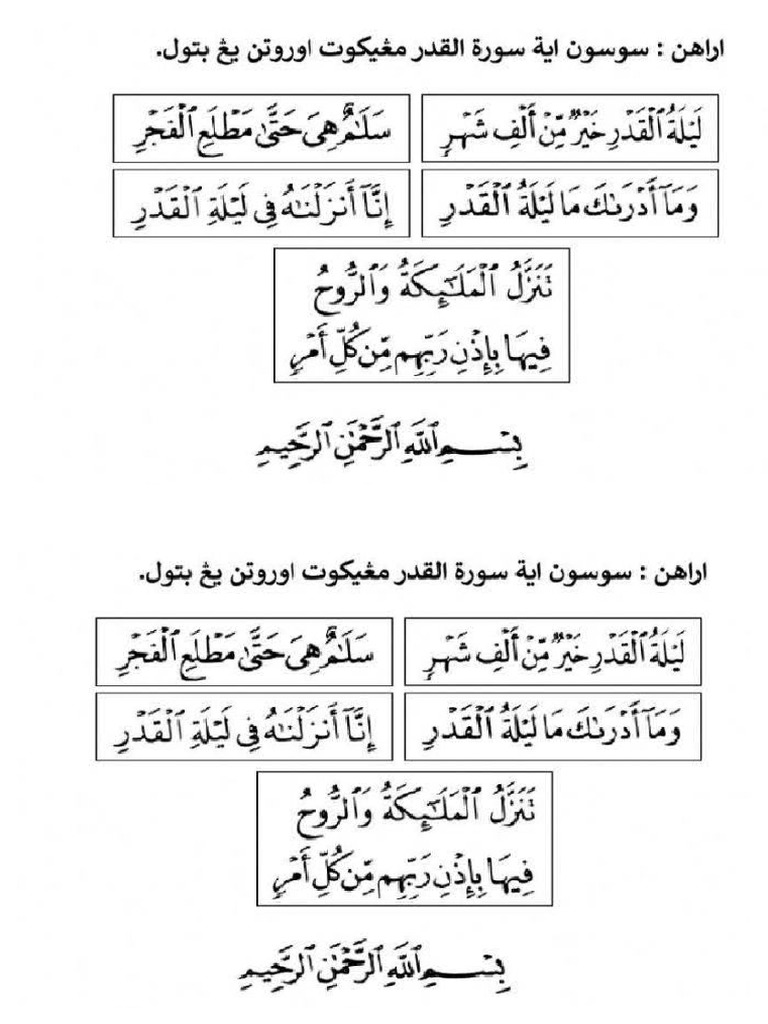 اراهن : سوسون اية سورة القدر مڠيکوت اوروتن يڠ بتول.
لَيْلَةُ ٱلْقَدْرِ خَيْرٌ مِّنْ أَلْفِ شَهْرٍ
سَلَـٰمٌ هِىَ حَتَّىٰ مَطْلَعِ ٱلْفَجْرِ
وَمَآ أَدْرَىٰكَ مَا لَيْلَةُ ٱلْقَدْرِ
إِنَّآ أَنزَلْنَـٰهُ فِى لَيْلَةِ ٱلْقَدْرِ
تَنَزَّلُ ٱلْمَلَـٰٓئِكَةُ وَٱلرُّوحُ
فِيهَا بِإِذْنِ رَبِّهِم مِّن كُلِّ أَمْرٍ
بِسْمِ ٱللَّهِ ٱلرَّحْمَـٰنِ ٱلرَّحِيمِ
اراهن : سوسون اية سورة القدر مڠيکوت اوروتن يڠ بتول.
لَيْلَةُ ٱلْقَدْرِ خَيْرٌ مِّنْ أَلْفِ شَهْرٍ
سَلَـٰمٌ هِىَ حَتَّىٰ مَطْلَعِ ٱلْفَجْرِ
وَمَآ أَدْرَىٰكَ مَا لَيْلَةُ ٱلْقَدْرِ
إِنَّآ أَنزَلْنَـٰهُ فِى لَيْلَةِ ٱلْقَدْرِ
تَنَزَّلُ ٱلْمَلَـٰٓئِكَةُ وَٱلرُّوحُ
فِيهَا بِإِذْنِ رَبِّهِم مِّن كُلِّ أَمْرٍ
بِسْمِ ٱللَّهِ ٱلرَّحْمَـٰنِ ٱلرَّحِيمِ